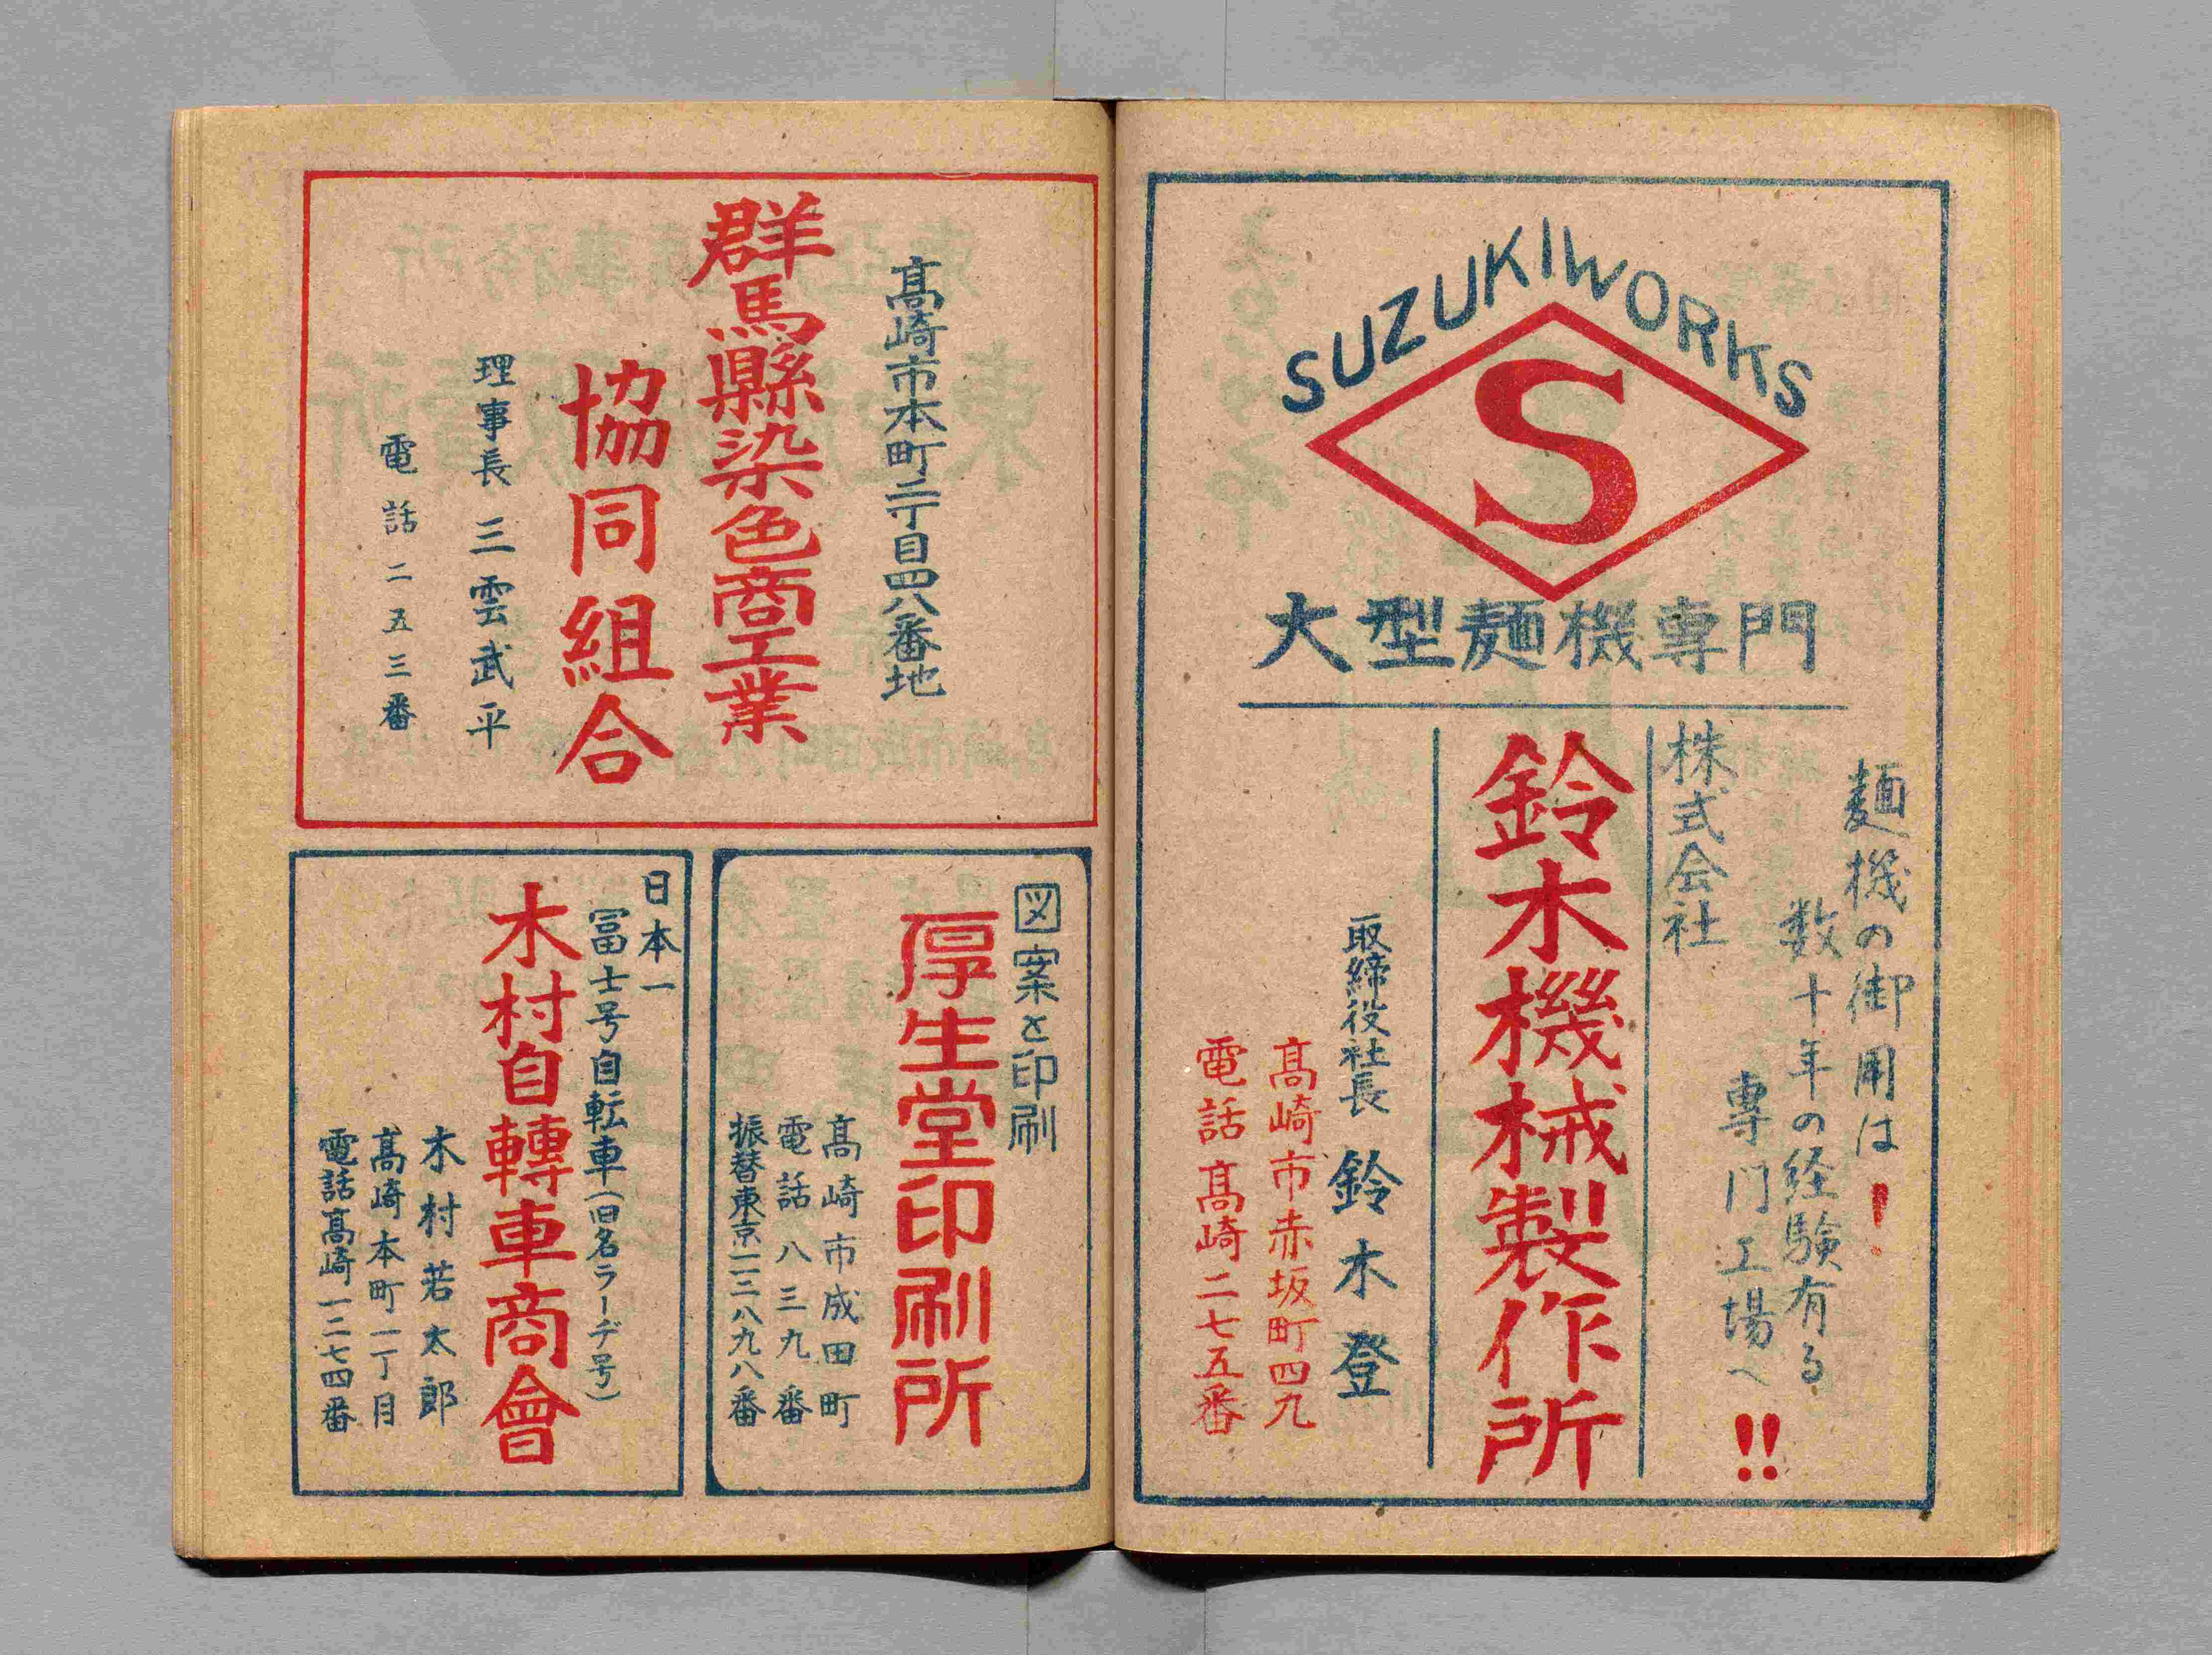 SUZUKIWORKS
S
大型麺機専門
麺機の御用は!
数十年の経験有る
専門工場へ!!
株式会社
鈴木機械製作所
取締役社長 鈴木登
髙崎市赤坂町四九
電話髙崎二七五番
髙崎市本町二丁目四八番地
群馬縣染色商工業
協同組合
理事長 三雲武平
電話二五三番
図案と印刷
厚生堂印刷所
髙崎市成田町
電話八三九番
振替東京一三八九八番
日本一
冨士号自転車(旧名ラーデ号)
木村自轉車商會
木村若太郎
髙崎本町一丁目
電話髙崎一二七四番